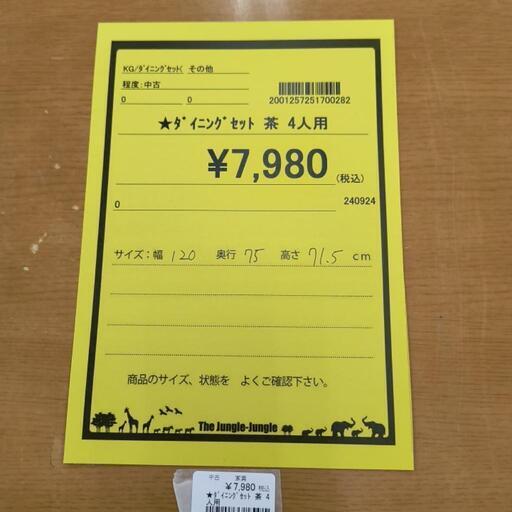 KG/ﾀﾞｲﾆﾝｸﾞｾｯﾄ( その他
程度:中古
0 0
2001257251700282
★ﾀﾞｲﾆﾝｸﾞｾｯﾄ 茶 4人用
¥7,980 (税込)
0 240924
サイズ:幅 120 奥行 75 高さ 71.5 cm
商品のサイズ、状態を よくご確認下さい。
The Jungle-Jungle
中古 家具
¥7,980 税込
★ﾀﾞｲﾆﾝｸﾞｾｯﾄ 茶 4
人用